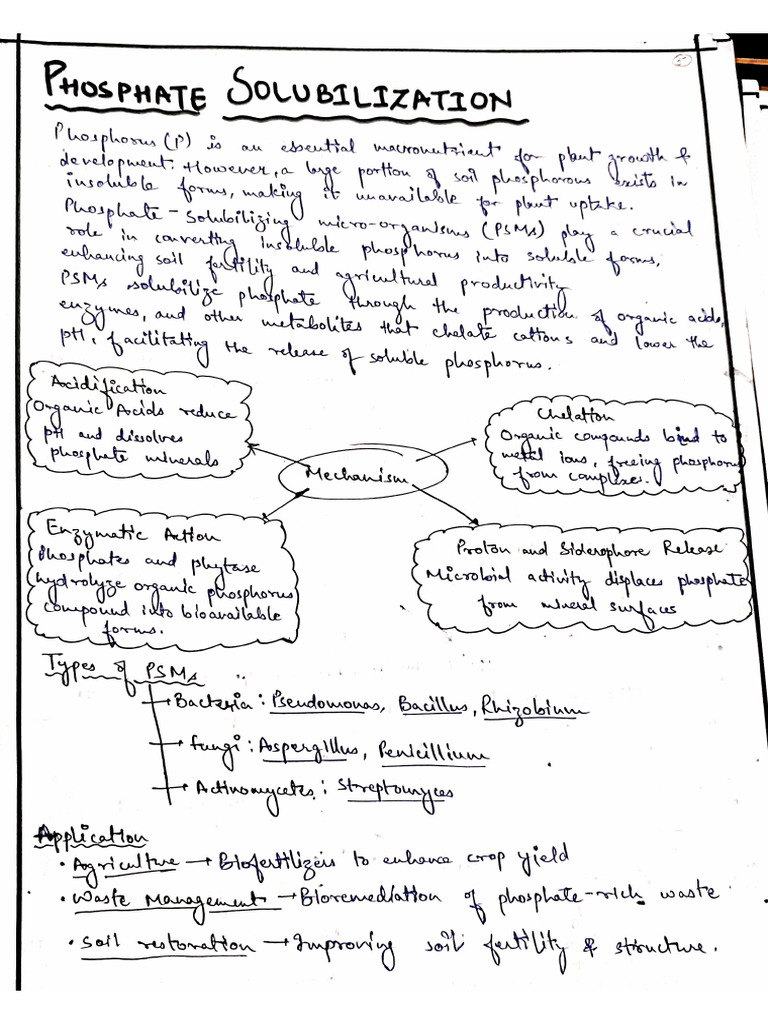 PHOSPHATE SOLUBILIZATION
Phosphorus (P) is an essential macronutrient for plant growth &
development. However, a large portion of soil phosphorous exists in
insoluble forms, making it unavailable for plant uptake.
Phosphate-Solubilizing micro-organisms (PSMs) play a crucial
role in converting insoluble phosphorus into soluble forms,
enhancing soil fertility and agricultural productivity
PSMs solubilize phosphate through the production of organic acids,
enzymes, and other metabolites that chelate cations and lower the
pH, facilitating the release of soluble phosphorus.
Acidification
Organic Acids reduce
pH and dissolves
phosphate minerals
Chelation
Organic compounds bind to
metal ions, freeing phosphorus
from complexes.
Mechanism
Enzymatic Action
Phosphates and phytase
hydrolyze organic phosphorus
compound into bioavailable
forms.
Proton and Siderophore Release
Microbial activity displaces phosphate
from mineral surfaces
Types of PSMs
Bacteria: Pseudomonas, Bacillus, Rhizobium
Fungi: Aspergillus, Penicillium
Actinomycates: Streptomyces
Application
• Agriculture → Biofertilizers to enhance crop yield
• Waste Management → Bioremediation of phosphate-rich waste
• Soil restoration → Improving soil fertility & structure.